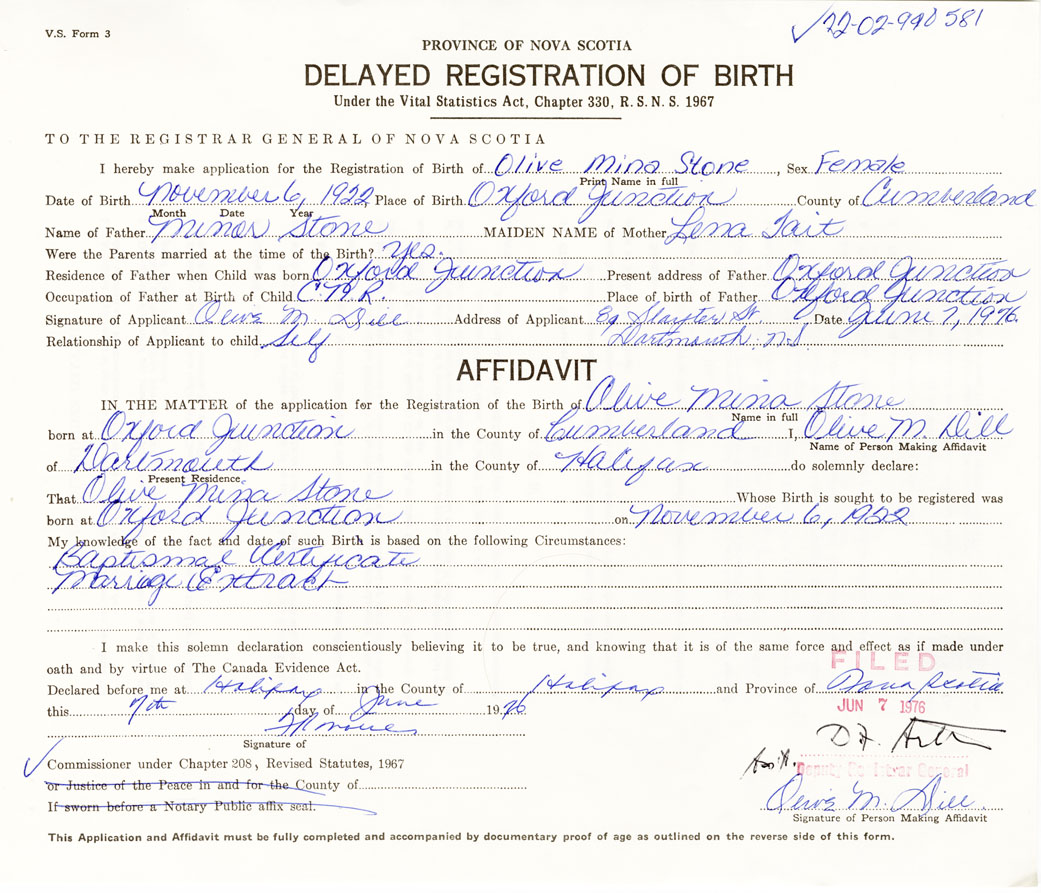 V.S. Form 3
22-02-990581
PROVINCE OF NOVA SCOTIA
DELAYED REGISTRATION OF BIRTH
Under the Vital Statistics Act, Chapter 330, R. S. N. S. 1967
TO THE REGISTRAR GENERAL OF NOVA SCOTIA
I hereby make application for the Registration of Birth of Olive Mina Stone, Sex Female
Print Name in full
Date of Birth November 6, 1922 Place of Birth Oxford Junction County of Cumberland
Month Date Year
Name of Father Minor Stone MAIDEN NAME of Mother Lena Tait
Were the Parents married at the time of the Birth? Yes.
Residence of Father when Child was born Oxford Junction Present address of Father Oxford Junction
Occupation of Father at Birth of Child C.N.R. Place of birth of Father Oxford Junction
Signature of Applicant Olive M. Dill Address of Applicant Slayter St. Date June 7, 1976.
Relationship of Applicant to child Self Dartmouth, N.S.
AFFIDAVIT
IN THE MATTER of the application for the Registration of the Birth of Olive Mina Stone
Name in full
born at Oxford Junction in the County of Cumberland I, Olive M. Dill
Name of Person Making Affidavit
of Dartmouth in the County of Halifax do solemnly declare:
Present Residence
That Olive Mina Stone Whose Birth is sought to be registered was
born at Oxford Junction on November 6, 1922
My knowledge of the fact and date of such Birth is based on the following Circumstances:
Baptismal Certificate
Marriage Extract
I make this solemn declaration conscientiously believing it to be true, and knowing that it is of the same force and effect as if made under
oath and by virtue of The Canada Evidence Act.
FILED
Declared before me at Halifax in the County of Halifax and Province of Nova Scotia
this 7th day of June 1976
JUN 7 1976
Signature of
Commissioner under Chapter 208, Revised Statutes, 1967
Asst.
Deputy Registrar General
or Justice of the Peace in and for the County of
If sworn before a Notary Public affix seal.
Olive M. Dill
Signature of Person Making Affidavit
This Application and Affidavit must be fully completed and accompanied by documentary proof of age as outlined on the reverse side of this form.